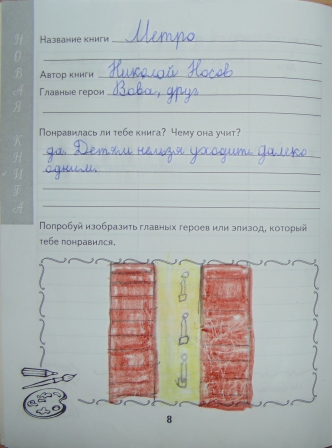 НОВАЯ КНИГА
Название книги Метро
Автор книги Николай Носов
Главные герои Вова, друг
Понравилась ли тебе книга? Чему она учит?
да. Детям нельзя уходить далеко
одним.
Попробуй изобразить главных героев или эпизод, который
тебе понравился.
8